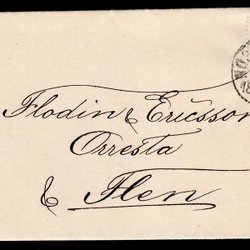 Flodin & Ericsson
Orresta
& Flen